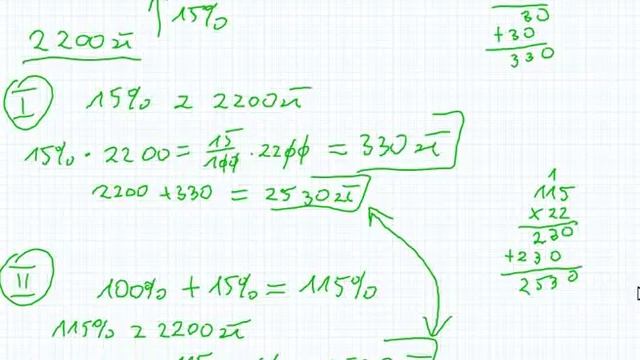 15%
2200 zł
I
15% z 2200 zł
15% · 2200 = 15/100 · 2200 = 330 zł
2200 + 330 = 2530 zł
II
100% + 15% = 115%
115% z 2200 zł
30
+30
330
1
115
x 22
230
+230
2530